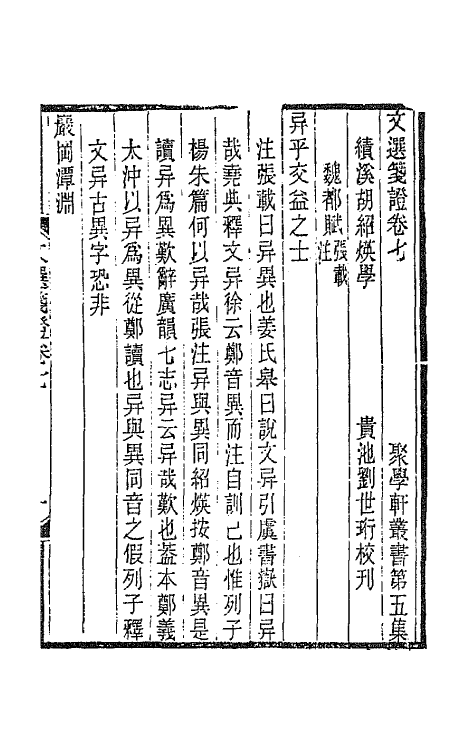 文選箋證卷七　聚學軒叢書第五集
績溪胡紹煐學　貴池劉世珩校刊
魏都賦張載注
异乎交益之士
注張載曰异異也姜氏皋曰說文异引虞書嶽曰异
哉堯典釋文异徐云鄭音異而注自訓已也惟列子
楊朱篇何以异哉張注异與異同紹煐按鄭音異是
讀异爲異歎辭廣韻七志异云异哉歎也葢本鄭義
太沖以异爲異從鄭讀也异與異同音之假列子釋
文异古異字恐非
巖岡潭淵
文選箋證卷七
一